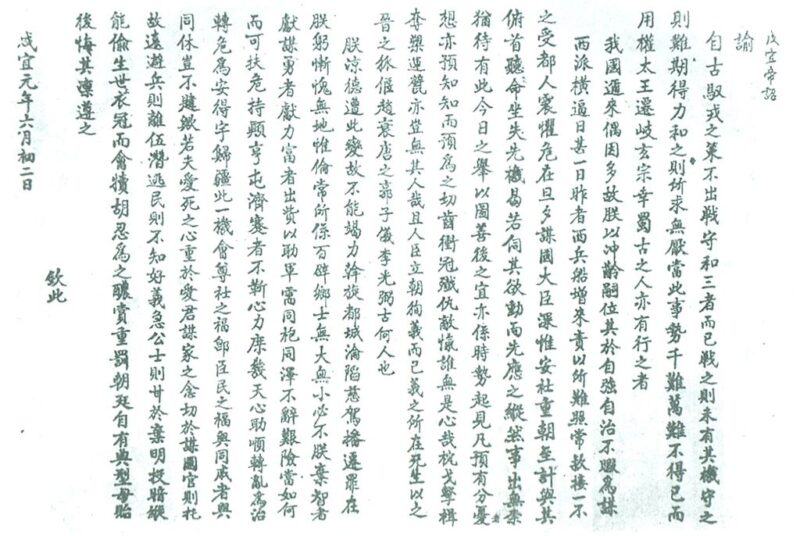 咸宜帝詔
諭
自古馭戎之策不出戰守和三者而已戰之則未有其機守之
則難期得力和之則所求無厭當此事勢千難萬難不得已而
用權太王遷岐玄宗幸蜀古之人亦有行之者
我國邇來偶因多故朕以沖齡嗣位其於自強自治不暇為謀
西派橫逼日甚一日昨者西兵船增來責以所難照常款接一不
之受都人震懼危在旦夕謀國大臣深惟安社重朝至計與其
俯首聽命坐失先機曷若伺其欲動而先應之縱然事出無柰
猶待有此今日之舉以圖善後之宜亦係時勢起見凡預有分憂者
想亦預知知而預為之切齒衝冠殲仇敵愾誰無是心哉枕戈擊楫
奪槊運甓亦豈無其人哉且人臣立朝徇義而已義之所在死生以之
晉之狐偃趙衰唐之郭子儀李光弼古何人也
朕涼德遭此變故不能竭力斡旋都城淪陷慈駕播遷罪在
朕躬慚愧無地惟倫常所係百辟鄉士無大無小必不朕棄智者
獻謀勇者獻力富者出貲以助軍需同袍同澤不辭艱險當如何
而可扶危持顛亨屯濟蹇者不靳心力庶幾天心助順轉亂為治
轉危為安得字歸疆此一機會尊社之福卽臣民之福與同戚者與
同休豈不韙歟若夫愛死之心重於愛君謀家之念切於謀國官則托
故遠避兵則離伍潛逃民則不知好義急公士則甘於棄明投暗縱
能偷生世衣冠而禽犢胡忍為之醲賞重罰朝廷自有典型毋貽
後悔其凜遵之
欽此
咸宜元年六月初二日